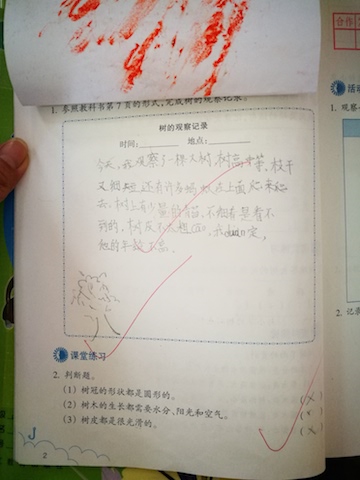 1. 参照教科书第7页的形式,完成树的观察记录。
树的观察记录
时间: 地点:
今天,我观察了一棵大树,树高中等,枝干
又细 还有许多蚂蚁在上面爬来爬
去,树上有少量的青苔,不细看是看不
到的,树皮不太粗 我 定,
她的年龄不高。
课堂练习
2. 判断题。
(1) 树冠的形状都是圆形的。 (×)
(2) 树木的生长都需要水分、阳光和空气。
(3) 树皮都是很光滑的。 (×)
J
2
合作
活动
1. 观察
2. 记录